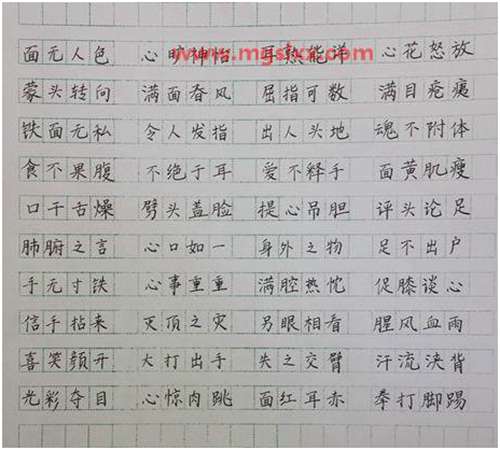 面无人色 心旷神怡 耳熟能详 心花怒放
蒙头转向 满面春风 屈指可数 满目疮痍
铁面无私 令人发指 出人头地 魂不附体
食不果腹 不绝于耳 爱不释手 面黄肌瘦
口干舌燥 劈头盖脸 提心吊胆 评头论足
肺腑之言 心口如一 身外之物 足不出户
手无寸铁 心事重重 满腔热忱 促膝谈心
信手拈来 灭顶之灾 另眼相看 腥风血雨
喜笑颜开 大打出手 失之交臂 汗流浃背
光彩夺目 心惊肉跳 面红耳赤 拳打脚踢